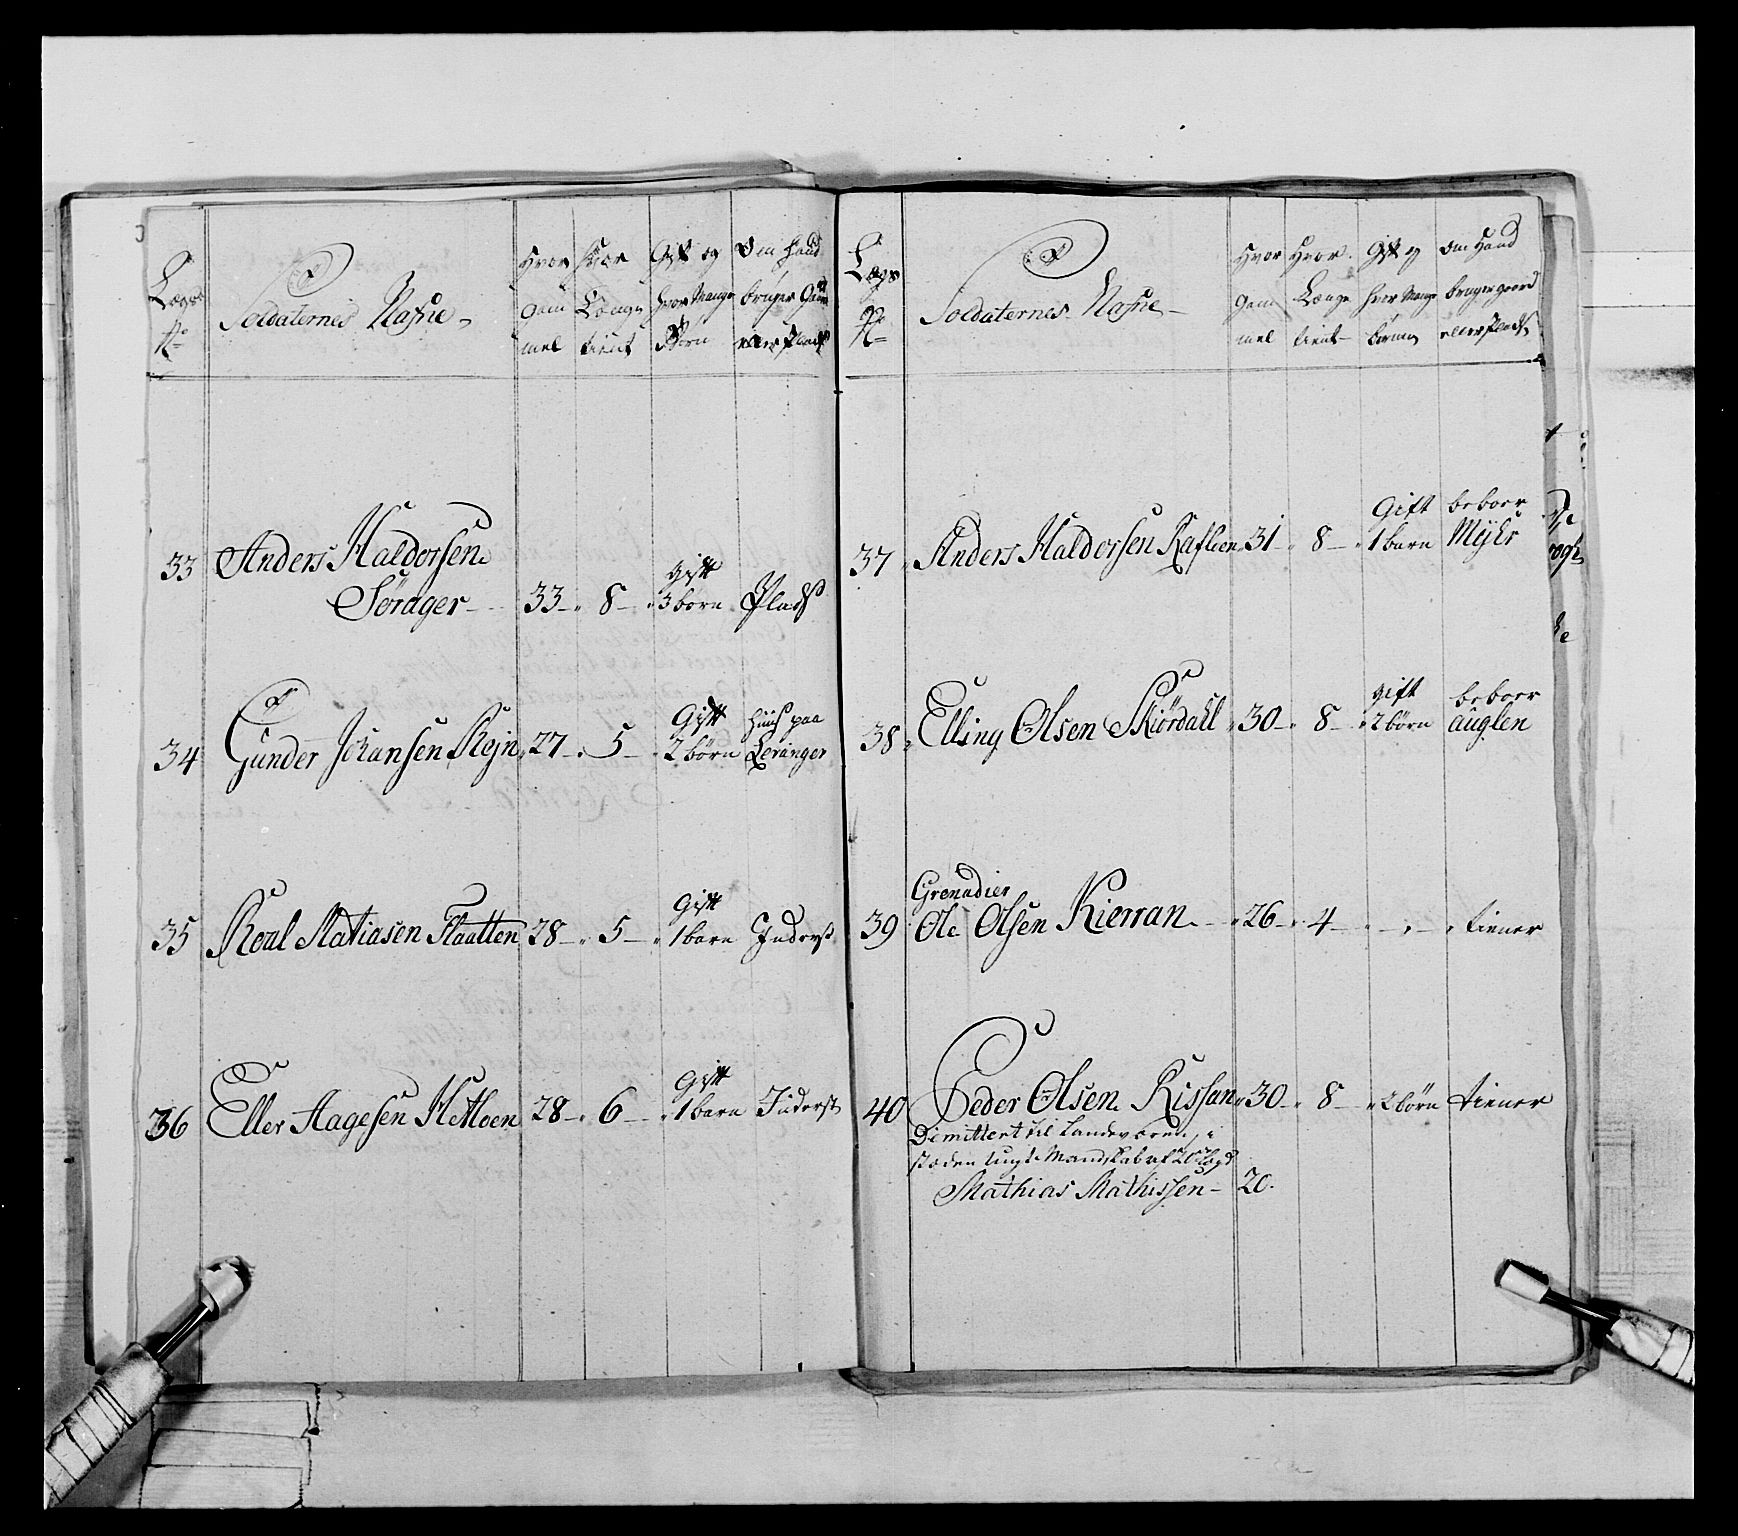 Lægs No
Soldaternes Nafne
Hvor gam mel
Hvor Længe tient
Gift og hvor Mange Børn
Om hand bruger Gaard eller Plads
33 Anders Haldorsen
Sørager 33 8 Gift 3 børn Plads
34 Gunder Johansen Rejn 27 5 Gift 2 børn Huus paa Leranger
35 Roal Matiasen Flaatten 28 5 Gift 1 barn Inderst
36 Eller Aagesen Hetloen 28 6 Gift 1 barn Inderst
Lægs No
Soldaternes Nafne
Hvor gam mel
Hvor Længe tient
Gift og hver Mange børn
Om Hand bruger gaard eller Plads
37 Anders Haldorsen Rafleen 31 8 Gift 1 barn beboer Myhr
38 Elling Olsen Skiördahl 30 8 gift 2 børn beboer auglen
Grenadier
39 Ole Olsen Kierran 26 4 tiener
40 Peder Olsen Rissan 30 8 2 børn tiener
Dimittert til Landeværen, i
stæden ungt Mandskab af 20 Lægd
Mathias Mathissen 20.